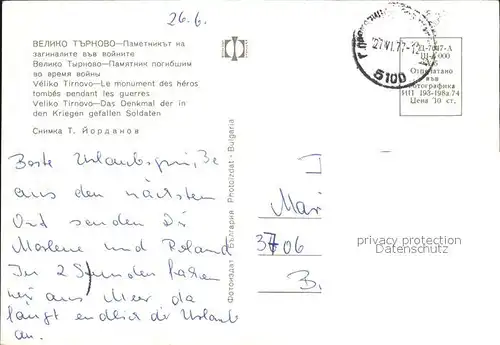 26.6.
ВЕЛИКО ТЪРНОВО—Паметникът на
загиналите във войните
Велико Тырново—Памятник погибшим
во время войны
Véliko Tirnovo—Le monument des héros
tombés pendant les guerres
Veliko Tirnovo—Das Denkmal der in
den Kriegen gefallen Soldaten
Снимка Т. Йорданов
Фотоиздат · България Photoizdat · Bulgaria
27.VI.77-12
5100
000
Отпечатано
във
фотографика
ИП 198-198а.74
Цена 10 ст.
Beste Urlaubsgrüße
aus dem nächsten
Ort senden Dir
Marlene und Roland
In 2 Stunden fahren
wir ans Meer da
fängt endlich der Urlaub
an.
Mari
3706
B.
privacy protection
Datenschutz